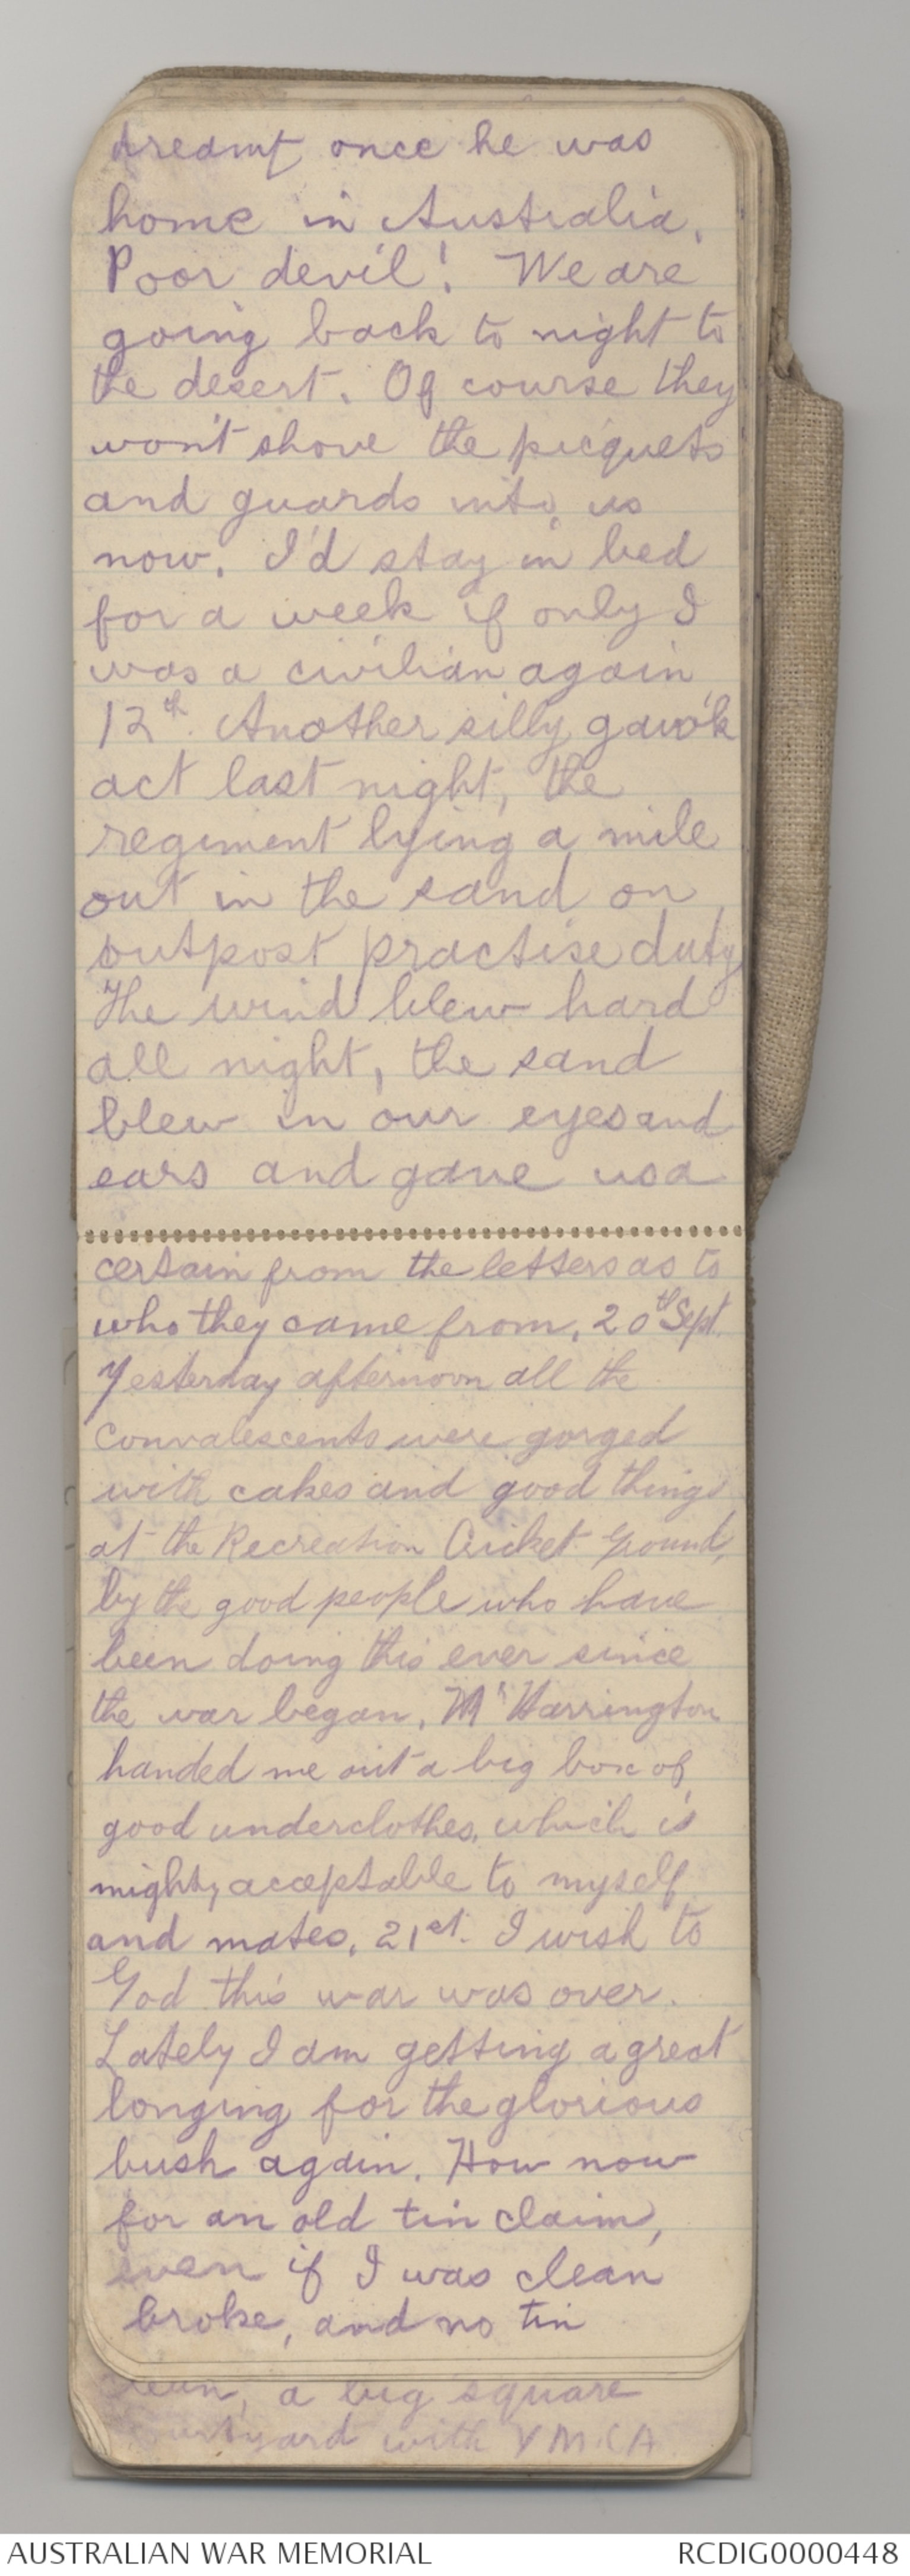 dreamt once he was
home in Australia.
Poor devil! We are
going back to night to
the desert. Of course they
won't shove the picquets
and guards into us
now. I'd stay in bed
for a week if only I
was a civilian again
12th. Another silly gawk
act last night, the
regiment lying a mile
out in the sand on
outpost practise duty
The wind blew hard
all night, the sand
blew in our eyes and
ears and gave us a
certain from the letters as to
who they came from. 20th Sept.
Yesterday afternoon all the
convalescents were gorged
with cakes and good things
at the Recreation Cricket Ground,
by the good people who have
been doing this ever since
the war began. Mr Harrington
handed me out a big box of
good underclothes, which is
mighty acceptable to myself
and mates. 21st. I wish to
God this war was over.
Lately I am getting a great
longing for the glorious
bush again. How now
for an old tin claim,
even if I was clean
broke, and no tin
a big square
with YMCA
AUSTRALIAN WAR MEMORIAL
RCDIG0000448